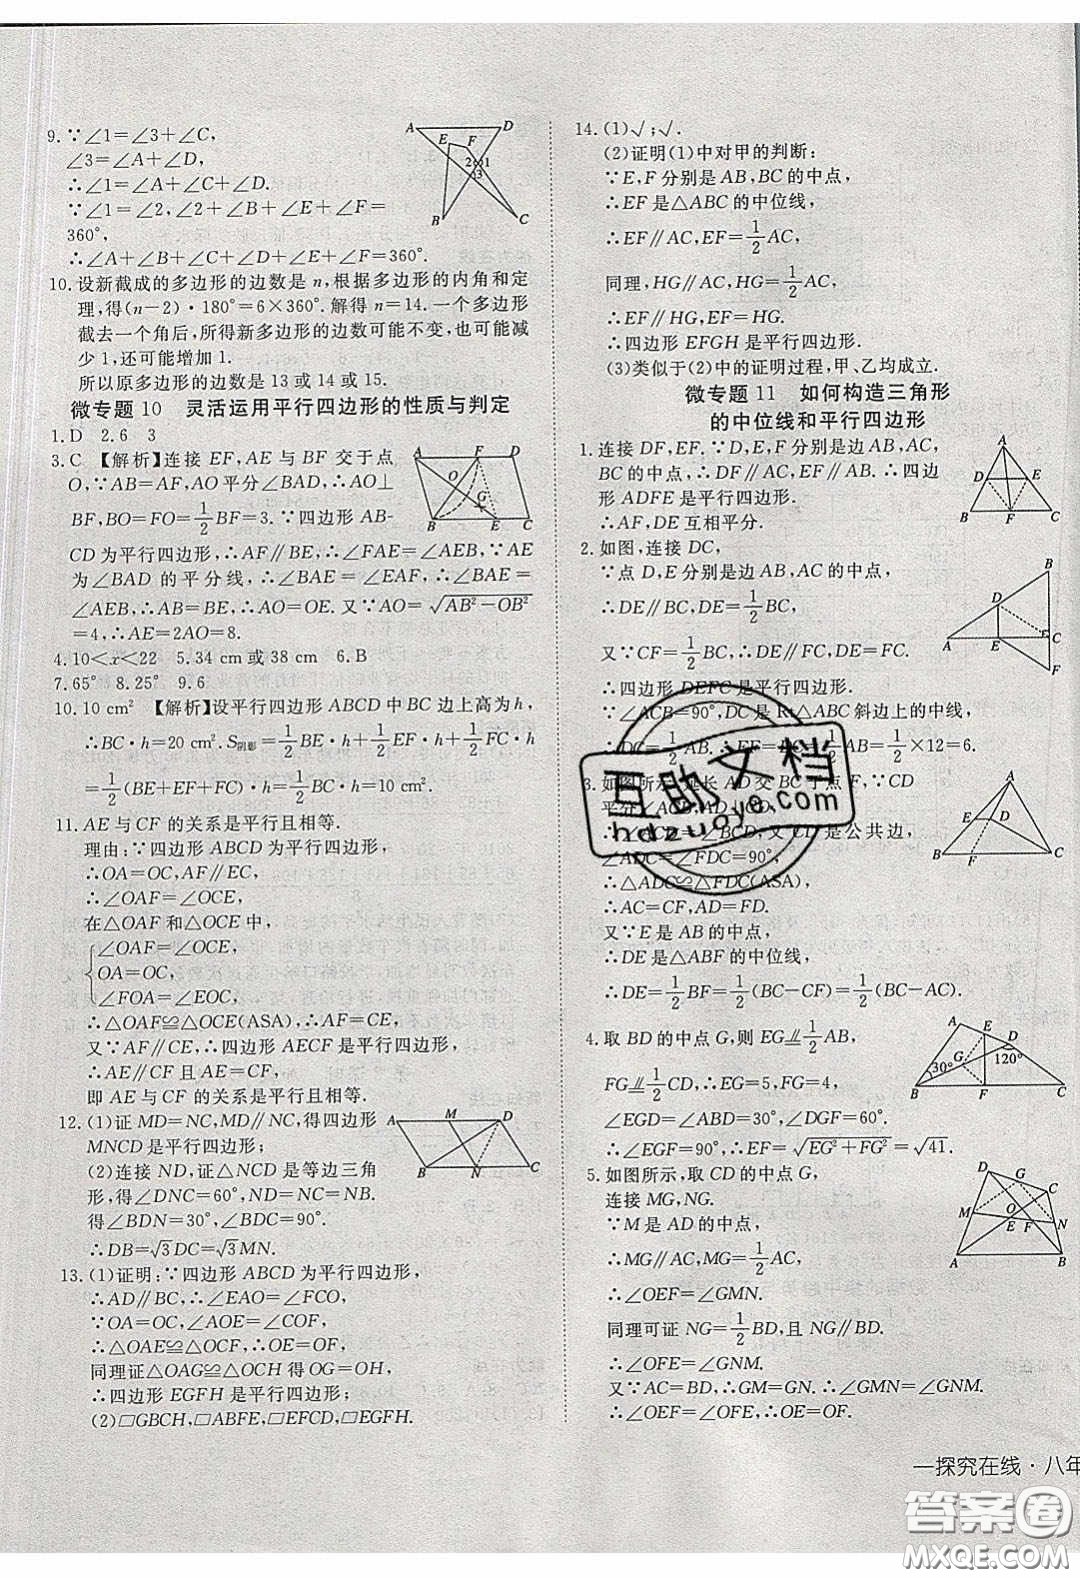 9. ∵∠1=∠3+∠C,
∠3=∠A+∠D,
∴∠1=∠A+∠C+∠D.
∵∠1=∠2,∠2+∠B+∠E+∠F=
360°,
∴∠A+∠B+∠C+∠D+∠E+∠F=360°.
10. 设新截成的多边形的边数是 n,根据多边形的内角和定
理,得(n-2)·180°=6×360°. 解得 n=14. 一个多边形
截去一个角后,所得新多边形的边数可能不变,也可能减
少 1,还可能增加 1.
所以原多边形的边数是 13 或 14 或 15.
微专题 10 灵活运用平行四边形的性质与判定
1. D 2. 6 3
3. C 【解析】连接 EF,AE 与 BF 交于点
O,∵AB=AF,AO平分∠BAD,∴AO⊥
BF,BO=FO=1/2BF=3. ∵四边形 AB-
CD为平行四边形,∴AF∥BE,∴∠FAE=∠AEB,∵AE
为∠BAD 的平分线,∴∠BAE=∠EAF,∴∠BAE=
∠AEB,∴AB=BE,∴AO=OE. 又∵AO=√(AB²-OB²)
=4,∴AE=2AO=8.
4. 10<x<22 5. 34 cm 或 38 cm 6. B
7. 65° 8. 25° 9. 6
10. 10 cm² 【解析】设平行四边形 ABCD 中 BC 边上高为 h,
∴BC·h=20 cm². S阴影=1/2BE·h+1/2EF·h+1/2FC·h
=1/2(BE+EF+FC)·h=1/2BC·h=10 cm².
11. AE 与 CF 的关系是平行且相等.
理由:∵四边形 ABCD 为平行四边形,
∴OA=OC,AF∥EC,
∴∠OAF=∠OCE,
在△OAF 和△OCE 中,
{∠OAF=∠OCE,
OA=OC,
∠FOA=∠EOC,
∴△OAF≌△OCE(ASA),∴AF=CE,
又∵AF∥CE,∴四边形 AECF 是平行四边形,
∴AE∥CF 且 AE=CF,
即 AE 与 CF 的关系是平行且相等.
12. (1)证 MD=NC,MD∥NC,得四边形
MNCD 是平行四边形;
(2)连接 ND,证△NCD 是等边三角
形,得∠DNC=60°,ND=NC=BN.
得∠BDN=30°,∠BDC=90°.
∴DB=√3DC=√3MN.
13. (1)证明:∵四边形 ABCD 为平行四边形,
∴AD∥BC,∴∠EAO=∠FCO,
∵OA=OC,∠AOE=∠COF,
∴△OAE≌△OCF,∴OE=OF.
同理证△OAG≌△OCH 得 OG=OH,
∴四边形 EGFH 是平行四边形;
(2)□GBCH,□ABFE,□EFCD,□EGFH.
14. (1)√;√.
(2)证明(1)中对甲的判断:
∵E,F 分别是 AB,BC 的中点,
∴EF 是△ABC 的中位线,
∴EF∥AC,EF=1/2AC,
同理,HG∥AC,HG=1/2AC,
∴EF∥HG,EF=HG.
∴四边形 EFGH 是平行四边形.
(3)类似于(2)中的证明过程,甲、乙均成立.
微专题 11 如何构造三角形
的中位线和平行四边形
1. 连接 DF,EF. ∵D,E,F 分别是边 AB,AC,
BC 的中点,∴DF∥AC,EF∥AB,∴四边
形 ADFE 是平行四边形.
∴AF,DE 互相平分.
2. 如图,连接 DC,
∵点 D,E 分别是边 AB,AC 的中点,
∴DE∥BC,DE=1/2BC,
又∵CF=1/2BC,∴DE∥CF,DE=CF.
∴四边形 DEFC 是平行四边形.
∵∠ACB=90°,DC 是 Rt△ABC 斜边上的中线,
∴DC=1/2AB. ∴EF=DC=1/2AB=1/2×12=6.
3. 如图所示,延长 AD 交 BC 于点 F,∵CD
平分∠ACB,AD⊥CD,
∴∠ACD=∠BCD,又 CD 是公共边,
∠ADC=∠FDC=90°,
∴△ADC≌△FDC(ASA),
∴AC=CF,AD=FD.
又∵E 是 AB 的中点,
∴DE 是△ABF 的中位线,
∴DE=1/2BF=1/2(BC-CF)=1/2(BC-AC).
4. 取 BD 的中点 G,则 EG⫽1/2AB,
FG⫽1/2CD,∴EG=4,FG=5,
∠EGD=∠ABD=30°,∠DGF=60°.
∴∠EGF=90°,∴EF=√(EG²+FG²)=√41.
5. 如图所示,取 CD 的中点 G,
连接 MG,NG.
∵M 是 AD 的中点,
∴MG∥AC,MG=1/2AC,
∴∠OEF=∠GMN.
同理可证 NG=1/2BD,且 NG∥BD.
∴∠OFE=∠GNM.
又∵AC=BD,∴GM=GN. ∴∠GMN=∠GNM.
∴∠OEF=∠OFE,∴OE=OF.
互助文档
hdzuoye.com
一探究在线·八年
答案圈
MXQE.COM